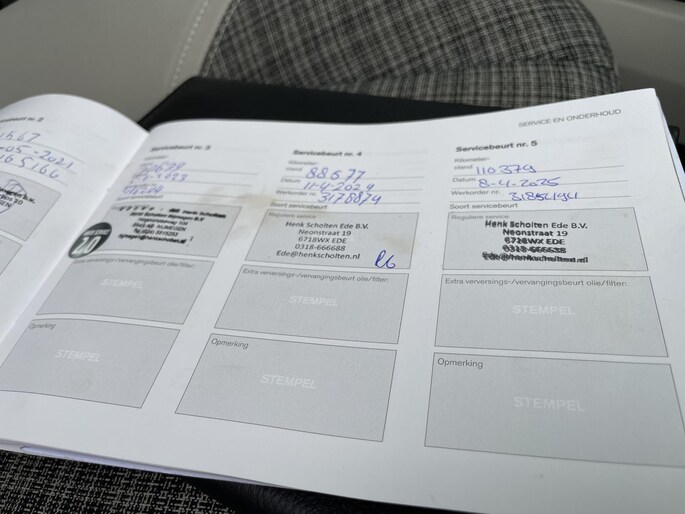 SERVICE EN ONDERHOUD
-05-2021
165166
Servicebeurt nr. 3
Extra verversings-/vervangingsbeurt olie/filter:
STEMPEL
Opmerking
STEMPEL
Servicebeurt nr. 4
Kilometer-
stand 88677
Datum 11-4-2024
Werkorder nr. 3178874
Soort servicebeurt
Reguliere service
Henk Scholten Ede B.V.
Neonstraat 19
6718WX EDE
0318-666688
Ede@henkscholten.nl
Extra verversings-/vervangingsbeurt olie/filter:
STEMPEL
Opmerking
STEMPEL
Servicebeurt nr. 5
Kilometer-
stand 110379
Datum 8-4-2025
Werkorder nr.
Soort servicebeurt
Reguliere service
Henk Scholten Ede B.V.
Neonstraat 19
6718WX EDE
0318-666688
Ede@henkscholten.nl
Extra verversings-/vervangingsbeurt olie/filter:
STEMPEL
Opmerking
STEMPEL